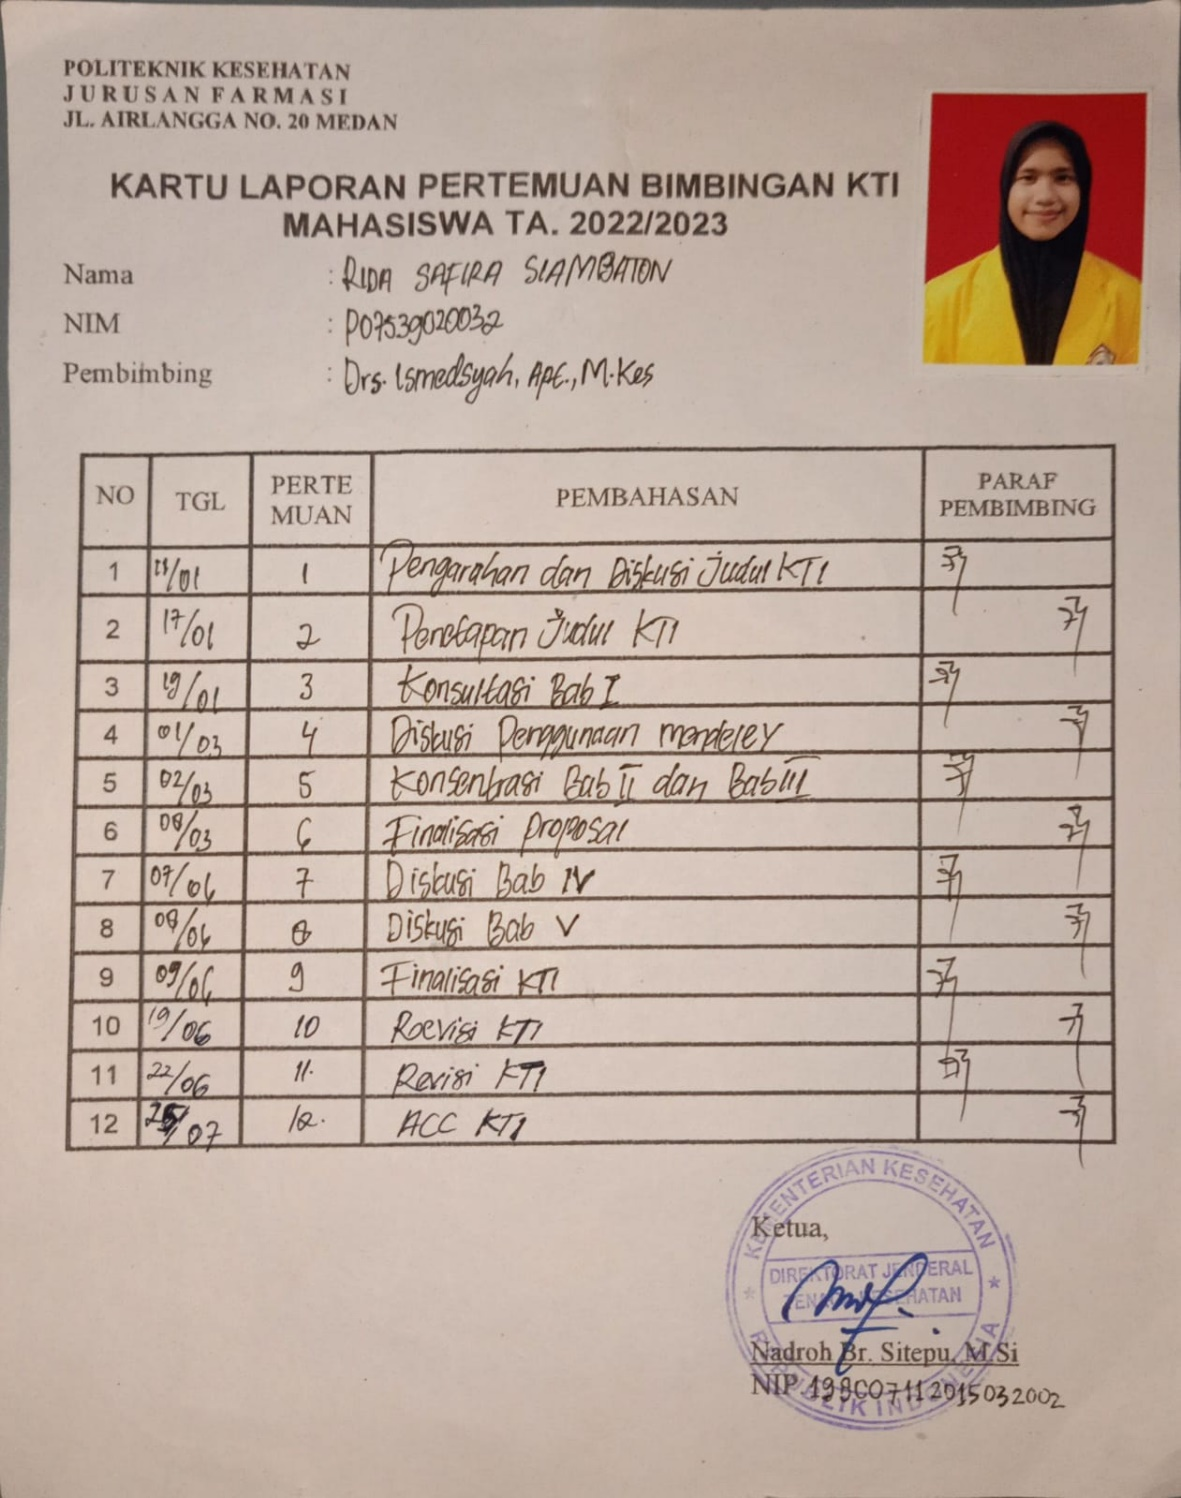 POLITEKNIK KESEHATAN
JURUSAN FARMASI
JL. AIRLANGGA NO. 20 MEDAN
KARTU LAPORAN PERTEMUAN BIMBINGAN KTI
MAHASISWA TA. 2022/2023
Nama : RIDA SAFIRA SIAMBATON
NIM : P07539020032
Pembimbing : Drs. Ismedsyah, Apt., M.Kes
NO TGL PERTE MUAN PEMBAHASAN PARAF PEMBIMBING
1 /01 1 Pengarahan dan Diskusi Judul KTI
2 17/01 2 Penetapan Judul KTI
3 19/01 3 Konsultasi Bab I
4 01/03 4 Diskusi Penggunaan mendeley
5 02/03 5 Konsentrasi Bab II dan Bab III
6 08/03 6 Finalisasi Proposal
7 07/06 7 Diskusi Bab IV
8 08/06 8 Diskusi Bab V
9 09/06 9 Finalisasi KTI
10 19/06 10 Roevisi KTI
11 22/06 11. Revisi KTI
12 25/07 12. ACC KTI
KEMENTERIAN KESEHATAN
Ketua,
DIREKTORAT JENDERAL
TENAGA KESEHATAN
REPUBLIK INDONESIA
Nadroh Br. Sitepu, M.Si
NIP. 198007112015032002